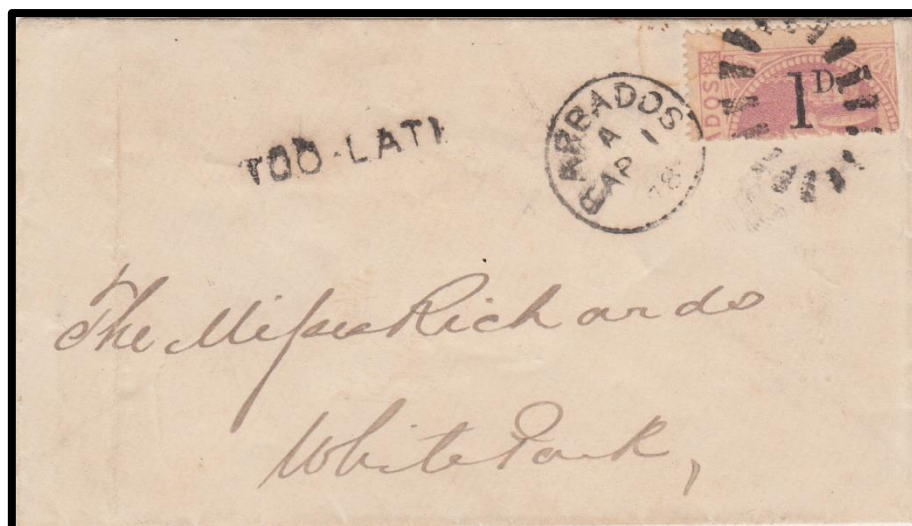 TOO-LATE
BARBADOS
A
AP 1
78
ADOS
1D
The Misses Richards
White Park,